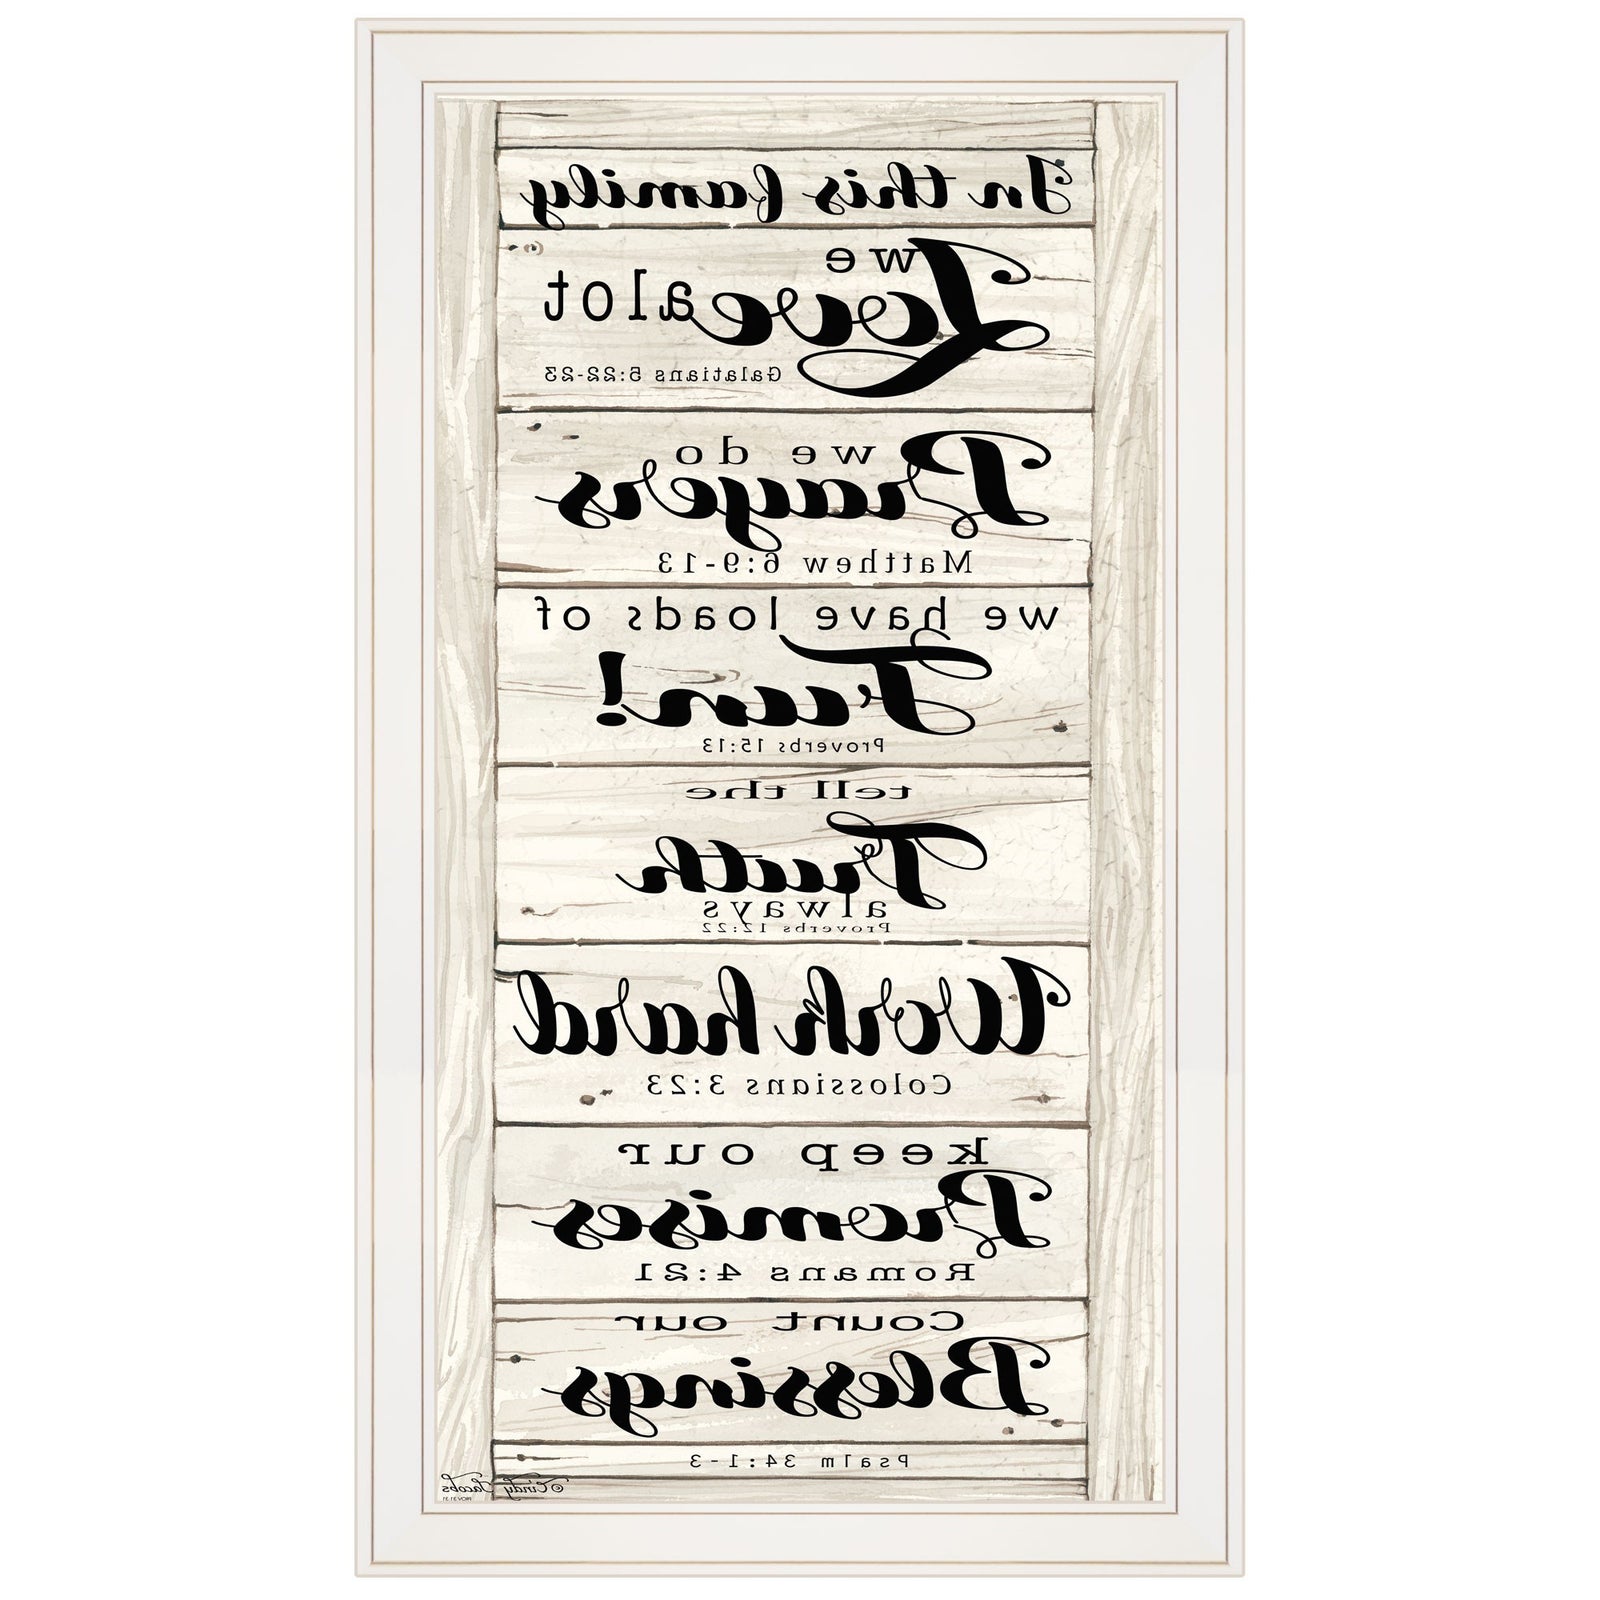 In this family
we
Love alot
Galatians 5:22-23
we do
Prayers
Matthew 6:9-13
we have loads of
Fun!
Proverbs 15:13
tell the
Truth
always
Proverbs 12:22
Work hard
Colossians 3:23
keep our
Promises
Romans 4:21
Count our
Blessings
Psalm 34:1-3
©Cindy Jacobs